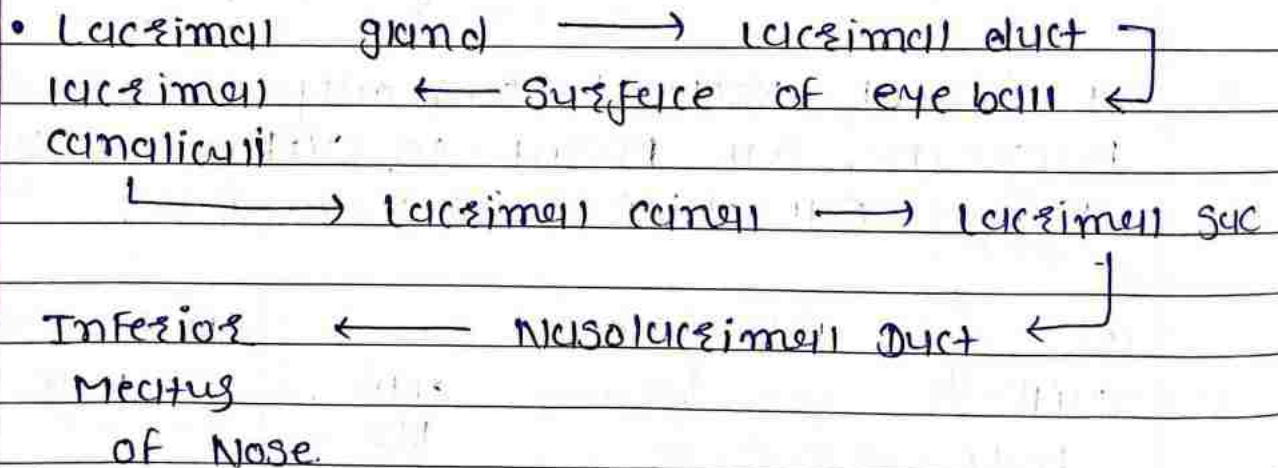 • Lacrimal gland → lacrimal duct
lacrimal ← Surface of eye ball
canaliculi
→ lacrimal canal → lacrimal sac
Inferior ← Nasolacrimal Duct
Meatus
of Nose.